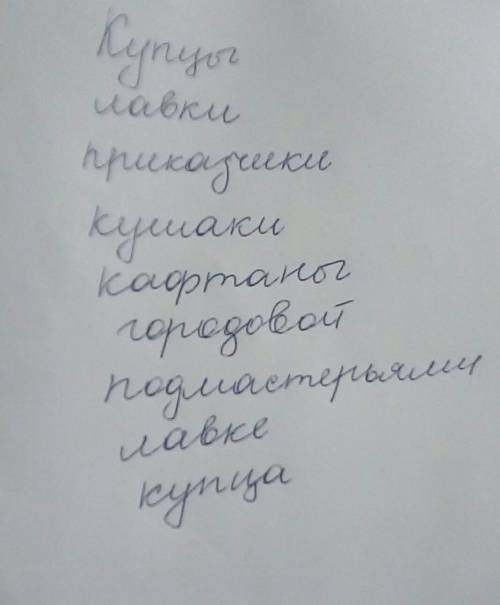 Купцы
лавки
приказчики
кушаки
кафтаны
городовой
подмастерьями
лавке
купца